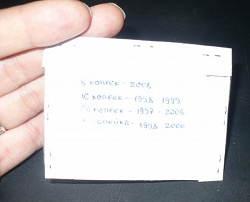 5 копеек - 2008
10 копеек - 1998 - 1999
копеек - 1997 - 2006
копейка - 1998 - 2000